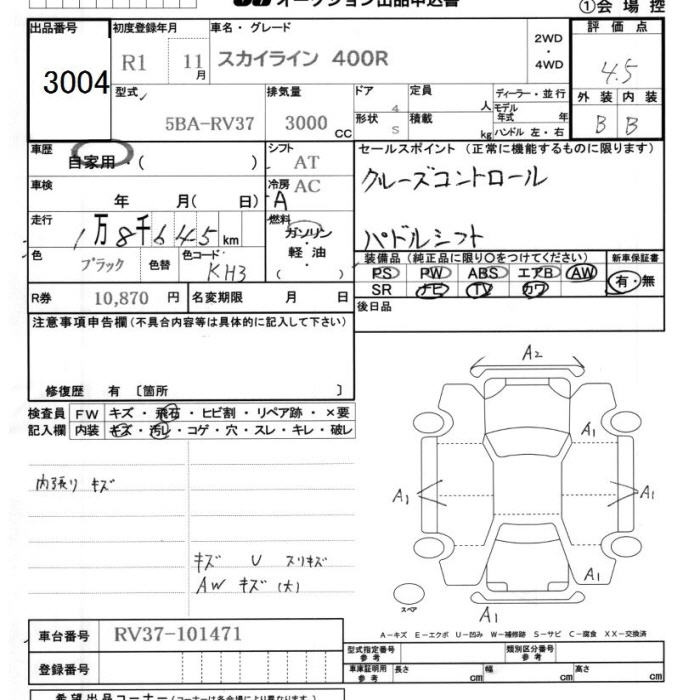 オークション出品申込書
①会場控
出品番号 初度登録年月 車名・グレード 評価点
3004 R1 11月 スカイライン 400R 2WD・4WD 4.5
型式 排気量 ドア 定員 ディーラー・並行 外装 内装
5BA-RV37 3000 CC 4 人 モデル年式 年 B B
形状 S 積載 kg ハンドル 左・右
車歴 シフト セールスポイント (正常に機能するものに限ります)
自家用・( ) AT
車検 冷房 AC クルーズコントロール
年 月( 日) A
走行 燃料
1万8千645km ガソリン・軽油 ( ) パドルシフト
色 色替 色コード 装備品 (純正品に限り○をつけてください) 新車保証書
ブラック KH3 PS PW ABS エアB AW 有・無
SR ナビ TV カワ
R券 10,870 円 名変期限 月 日 後日品
注意事項申告欄(不具合内容等は具体的に記入して下さい)
修復歴 有 〔箇所 〕
検査員記入欄 FW キズ・飛石・ヒビ割・リペア跡・×要
内装 キズ・汚レ・コゲ・穴・スレ・キレ・破レ
内張り キズ
キズ U スリキズ
AW キズ (大)
A2
A1
A1 A1
A1
A1
スペア
A-キズ E-エクボ U-凹み W-補修跡 S-サビ C-腐食 XX-交換済
車台番号 RV37-101471
登録番号
型式指定番号 参考 類別区分番号 参考
車庫証明用 参考 長さ cm 幅 cm 高さ cm
希望出品コーナー(コーナーは各会場により異なります。)